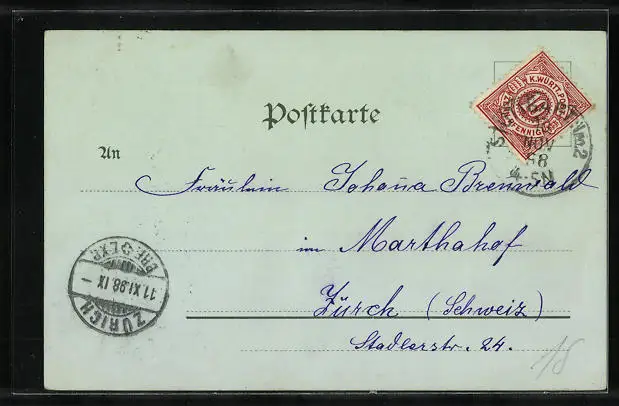 Postkarte
K. WÜRTT. POST
PFENNIG
NOV
98
4-5N
An
Fräulein Johaña Brennwald
im Marthahof
Zürch (Schweiz)
Stadlerstr. 24.
ZÜRICH
11.XI.98.IX-
BRF.EXP.